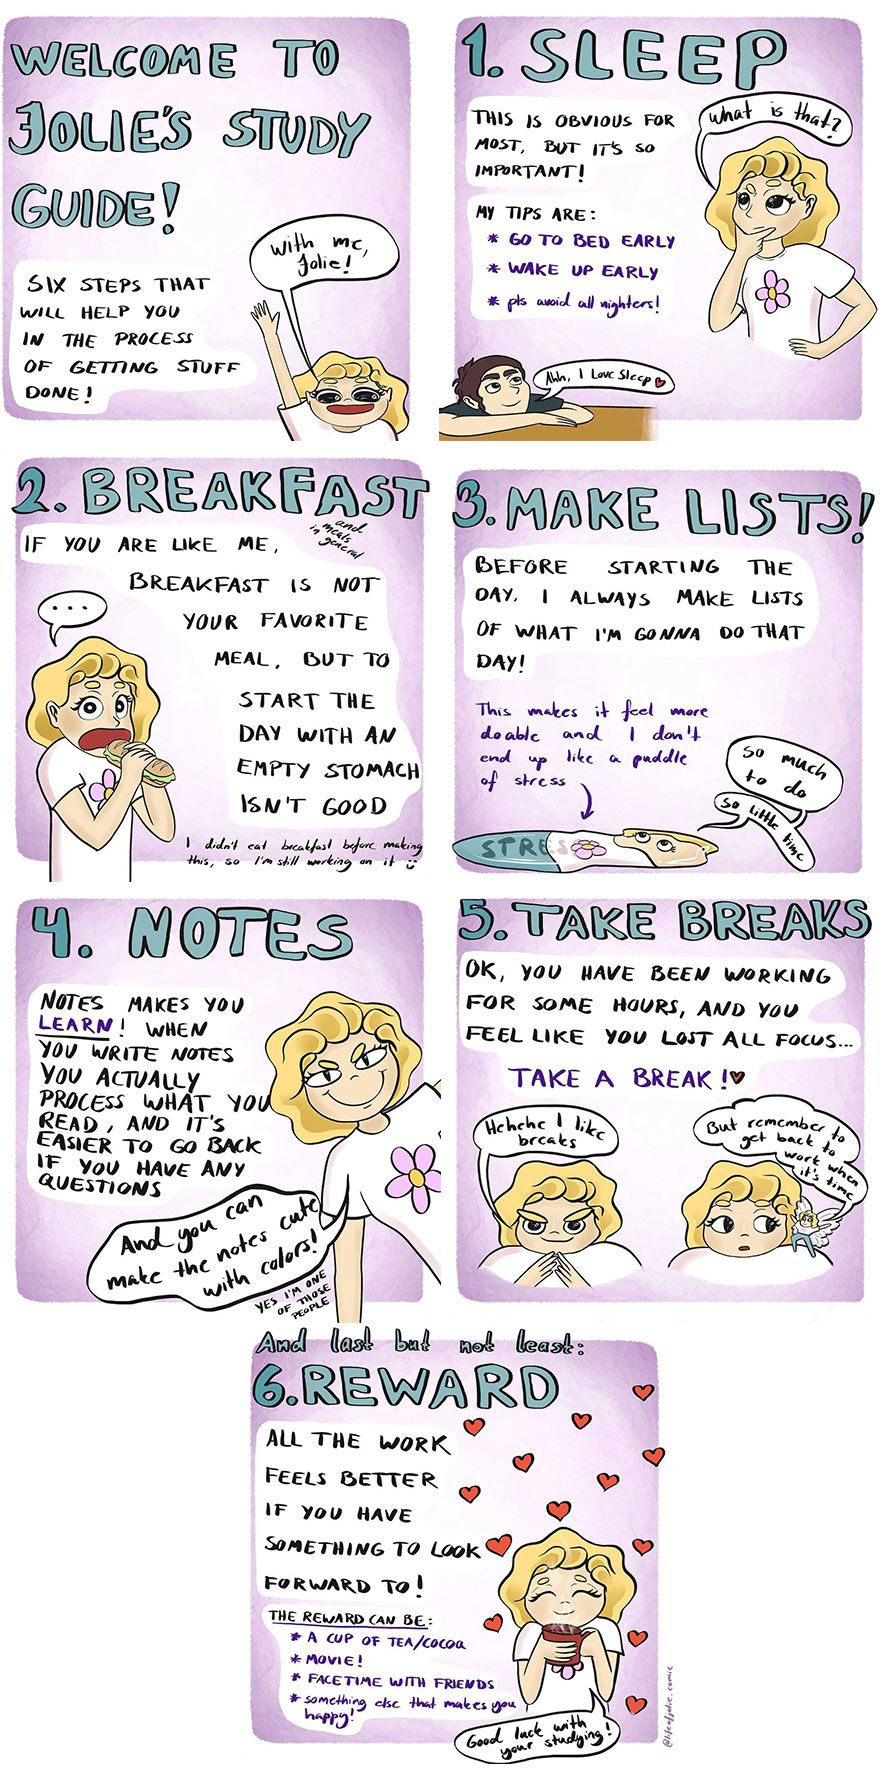 WELCOME TO
JOLIE'S STUDY
GUIDE!
SIX STEPS THAT
WILL HELP YOU
IN THE PROCESS
OF GETTING STUFF
DONE!
With me,
Jolie!
1. SLEEP
THIS IS OBVIOUS FOR
MOST, BUT IT'S SO
IMPORTANT!
What is that?
MY TIPS ARE:
* GO TO BED EARLY
* WAKE UP EARLY
* pls avoid all nighters!
Ahh, I Love Sleep ♥
2. BREAKFAST
and
meals
in general
IF YOU ARE LIKE ME,
BREAKFAST IS NOT
YOUR FAVORITE
MEAL, BUT TO
START THE
DAY WITH AN
EMPTY STOMACH
ISN'T GOOD
...
I didn't eat breakfast before making
this, so I'm still working on it :)
3. MAKE LISTS!
BEFORE STARTING THE
DAY, I ALWAYS MAKE LISTS
OF WHAT I'M GONNA DO THAT
DAY!
This makes it feel more
doable and I don't
end up like a puddle
of stress
So much
to do
So little time
STRESS
4. NOTES
NOTES MAKES YOU
LEARN! WHEN
YOU WRITE NOTES
YOU ACTUALLY
PROCESS WHAT YOU
READ, AND IT'S
EASIER TO GO BACK
IF YOU HAVE ANY
QUESTIONS
And you can
make the notes cute
with colors!
YES I'M ONE
OF THOSE
PEOPLE
5. TAKE BREAKS
OK, YOU HAVE BEEN WORKING
FOR SOME HOURS, AND YOU
FEEL LIKE YOU LOST ALL FOCUS...
TAKE A BREAK!♥
Hehehe I like
breaks
But remember to
get back to
work when
it's time
And last but not least:
6. REWARD
ALL THE WORK
FEELS BETTER
IF YOU HAVE
SOMETHING TO LOOK
FORWARD TO!
THE REWARD CAN BE:
* A CUP OF TEA/COCOA
* MOVIE!
* FACETIME WITH FRIENDS
* something else that makes you
happy!
Good luck with
your studying!
@lifeofjolie.comic